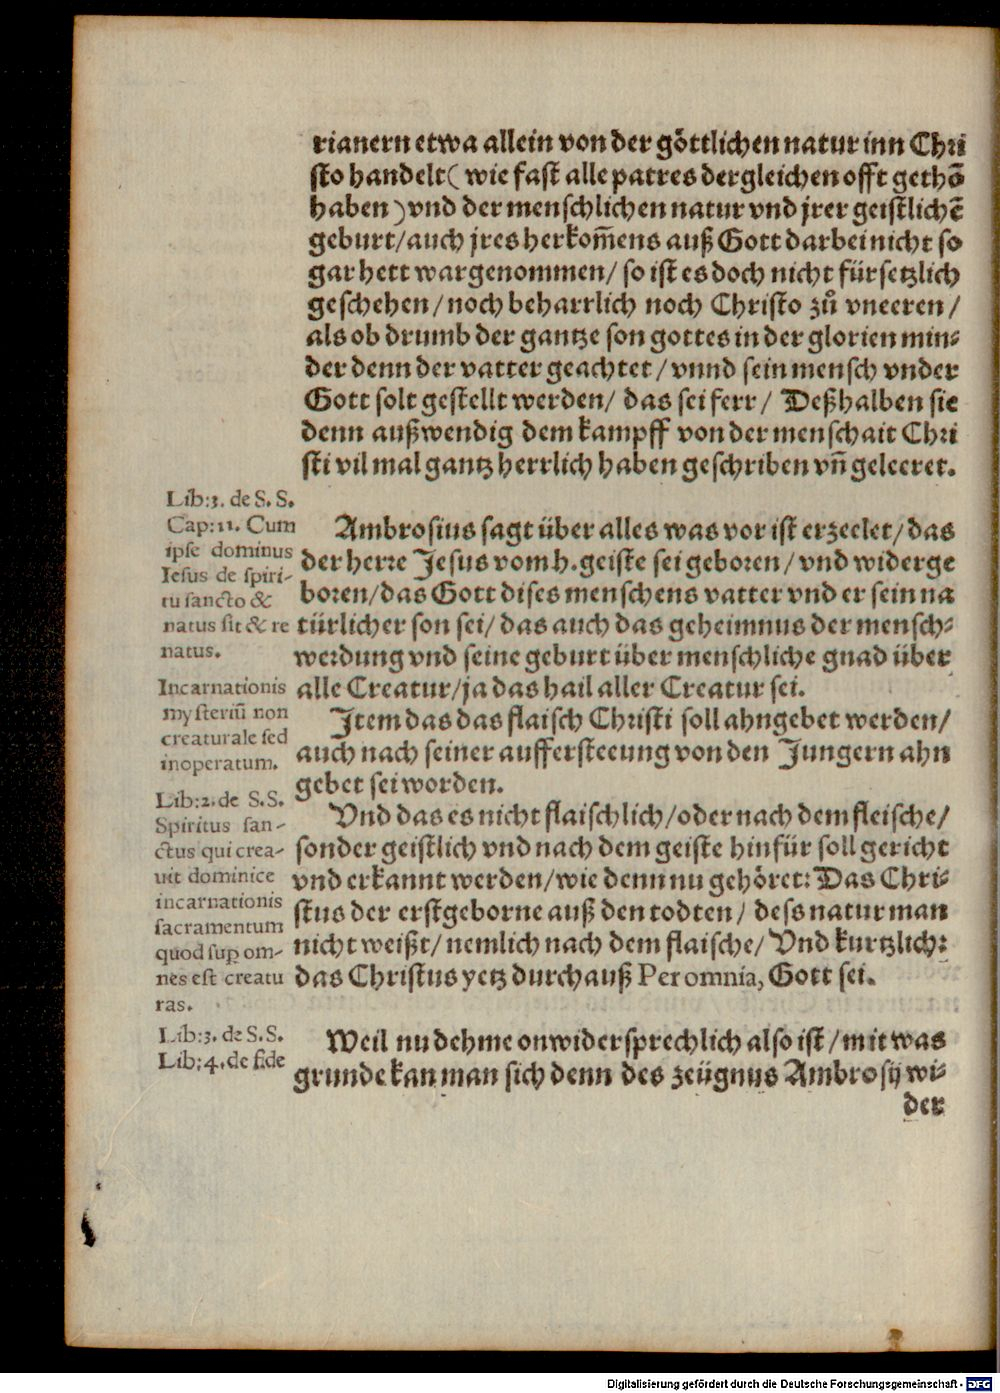 rianern etwa allein von der göttlichen natur inn Chri
sto handelt ( wie fast alle patres dergleichen offt gethō
haben ) vnd der menschlichen natur vnd jrer geistlichē
geburt / auch jres herkom̄ens auß Gott darbei nicht so
gar hett wargenommen / so ist es doch nicht fürsetzlich
geschehen / noch beharrlich noch Christo zů vneeren /
als ob drumb der gantze son gottes in der glorien min⸗
der denn der vatter geachtet / vnnd sein mensch vnder
Gott solt gestellt werden / das sei ferr / Deßhalben sie
denn außwendig dem kampff von der menschait Chri
sti vil mal gantz herrlich haben geschriben vn̄ geleeret.
Lib:3. de S. S.
Cap: 11. Cum
ipse dominus
Iesus de spiri-
tu sancto &
natus sit & re
natus.
Incarnationis
mysteriū non
creaturale sed
inoperatum.
Lib:2. de S.S.
Spiritus san-
ctus qui crea-
uit dominice
incarnationis
sacramentum
quod sup om-
nes est creatu
ras.
Lib:3. de S.S.
Lib:4. de fide
Ambrosius sagt über alles was vor ist erzeelet / das
der herre Jesus vom h. geiste sei geboren / vnd widerge
boren / das Gott dises menschens vatter vnd er sein na
türlicher son sei / das auch das geheimnus der mensch⸗
werdung vnd seine geburt über menschliche gnad über
alle Creatur / ja das hail aller Creatur sei.
Item das das flaisch Christi soll ahngebet werden /
auch nach seiner auffersteeung von den Jungern ahn
gebet sei worden.
Vnd das es nicht flaischlich / oder nach dem fleische /
sonder geistlich vnd nach dem geiste hinfür soll gericht
vnd erkannt werden / wie denn nu gehöret: Das Chri⸗
stus der erstgeborne auß den todten / dess natur man
nicht weißt / nemlich nach dem flaische / Vnd kurtzlich:
das Christus yetz durchauß Per omnia, Gott sei.
Weil nu dehme onwidersprechlich also ist / mit was
grunde kan man sich denn des zeügnus Ambrosij wi⸗
der
Digitalisierung gefördert durch die Deutsche Forschungsgemeinschaft - DFG